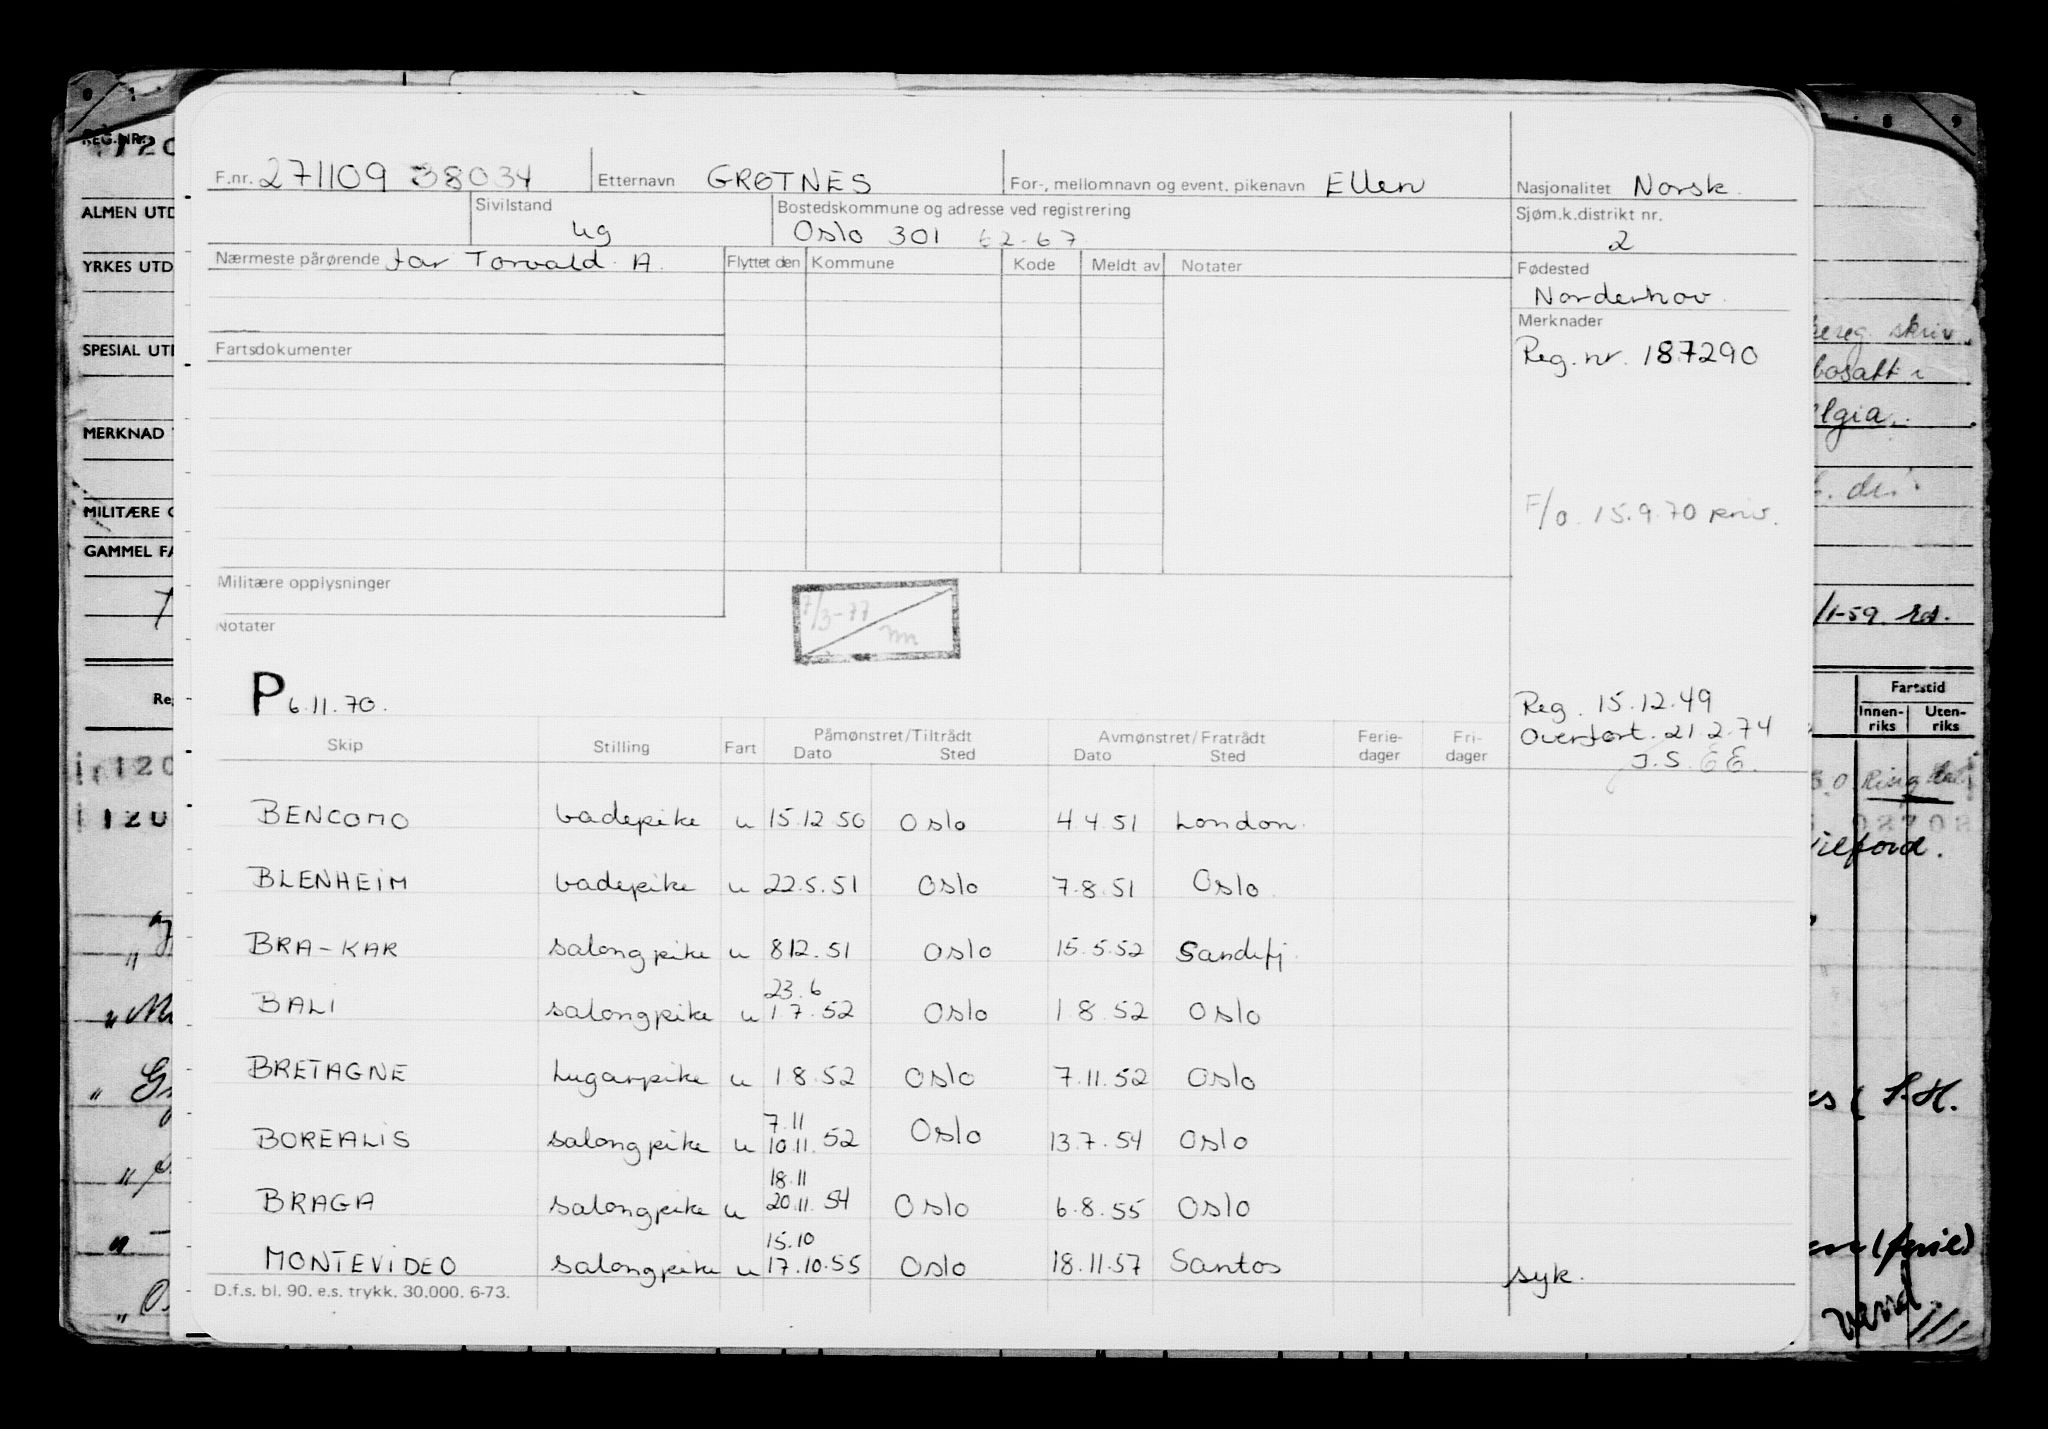 F.nr. 271109 38034 Etternavn GRØTNES For-, mellomnavn og event. pikenavn Ellen Nasjonalitet Norsk.
Sivilstand ug Bostedskommune og adresse ved registrering Oslo 301 62-67 Sjøm.k.distrikt nr. 2
Nærmeste pårørende far Torvald A. Flyttet den Kommune Kode Meldt av Notater Fødested
Norderhov.
Merknader
Fartsdokumenter Reg. nr. 187290
F/o. 15.9.70 priv.
Militære opplysninger
7/3-77
Notater
P 6.11.70. Reg. 15.12.49
Overført. 21.2.74
J.S. EE.
Skip Stilling Fart Påmønstret/Tiltrådt Avmønstret/Fratrådt Ferie- Fri-
Dato Sted Dato Sted dager dager
BENCOMO badepike u 15.12.50 Oslo 4.4.51 London.
BLENHEIM badepike u 22.5.51 Oslo 7.8.51 Oslo.
BRA-KAR salongpike u 8 12.51 Oslo 15.5.52 Sandefj.
23.6
BALI salongpike u 1.7.52 Oslo 1.8.52 Oslo
BRETAGNE Lugarpike u 1.8.52 Oslo 7.11.52 Oslo
7.11
BOREALIS salongpike u 10.11.52 Oslo 13.7.54 Oslo
18.11
BRAGA salongpike u 20.11.54 Oslo 6.8.55 Oslo
15.10
MONTEVIDEO salongpike u 17.10.55 Oslo 18.11.57 Santos syk.
D.f.s. bl. 90. e.s. trykk. 30.000. 6-73.
REG.NR.
120
ALMEN UTD
YRKES UTD
SPESIAL UTD
MERKNAD
MILITÆRE O
GAMMEL FA
Re
120
120
skriv.
bosatt i
lgia.
/1-59
Fartstid
Innen-riks Uten-riks
ilford.
S.H.
(ferie)
vend.